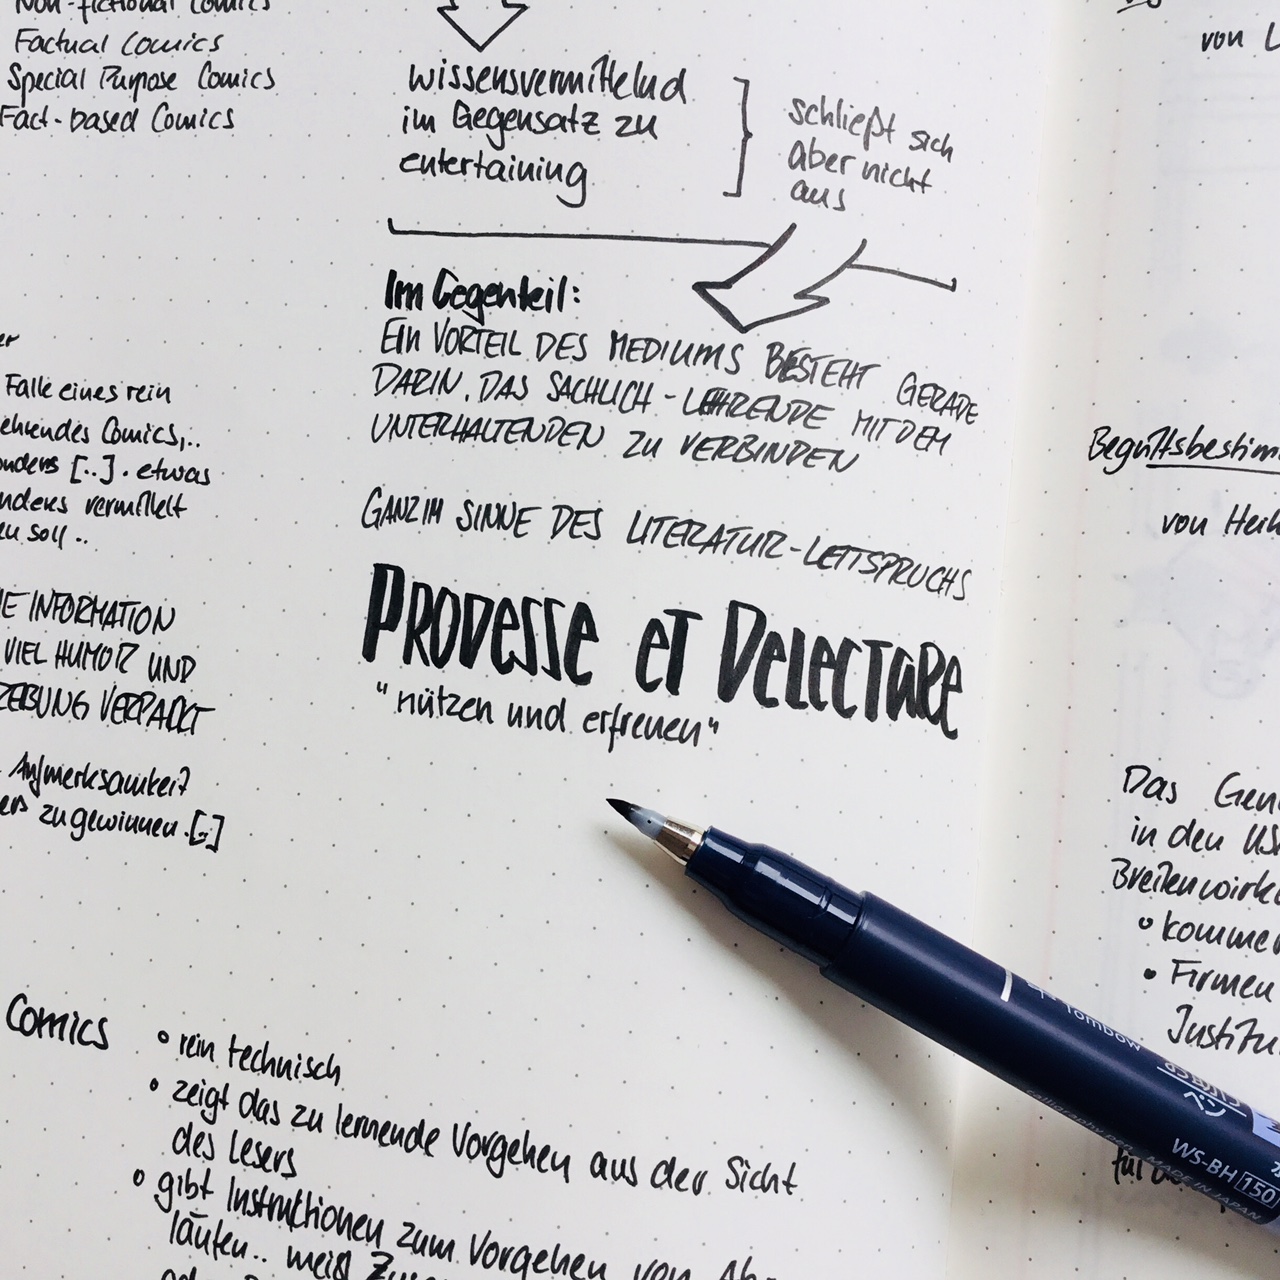 Non-fictional Comics
Factual Comics
Special Purpose Comics
Fact-based Comics
wissensvermittelnd
im Gegensatz zu
entertaining
schließt sich
aber nicht
aus
Im Gegenteil:
EIN VORTEIL DES MEDIUMS BESTEHT GERADE
DARIN, DAS SACHLICH-LEHRENDE MIT DEM
UNTERHALTENDEN ZU VERBINDEN
GANZ IM SINNE DES LITERATUR-LEITSPRUCHS
PRODESSE ET DELECTARE
"nützen und erfreuen"
er
Falle eines rein
ehrendes Comics,..
onders [..]. etwas
nders vermittelt
en soll ..
IE INFORMATION
VIEL HUMOR UND
ZEBUNG VERPACKT
Aufmerksamkeit
ers zu gewinnen.[.]
Comics
• rein technisch
• zeigt das zu lernende Vorgehen aus der Sicht
des Lesers
• gibt Instruktionen zum Vorgehen von Ab-
läufen.. meist
von L
Begriffsbestim
von Heik
Das Gen
in den US
Breitenwirk
• kommer
• Firmen
Institu
für
Tombow
WS-BH 150
MADE IN JAPAN